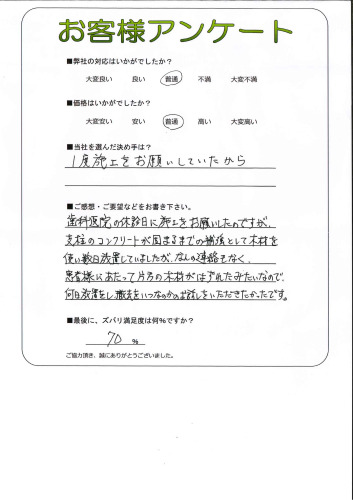 お客様アンケート
■弊社の対応はいかがでしたか?
大変良い 良い 普通 不満 大変不満
■価格はいかがでしたか?
大変安い 安い 普通 高い 大変高い
■当社を選んだ決め手は?
1度施工をお願いしていたから
■ご感想・ご要望などをお書き下さい。
歯科医院の休診日に施工をお願いしたのですが、
支柱のコンクリートが固まるまでの補強として木材を
使い数日放置していましたが、なんの連絡もなく、
患者様にあたって片方の木材がはずれたみたいなので、
何日放置をし、撤去をいつなのかのお話しをいただきたかったです。
■最後に、ズバリ満足度は何%ですか?
70 %
ご協力頂き、誠にありがとうございました。